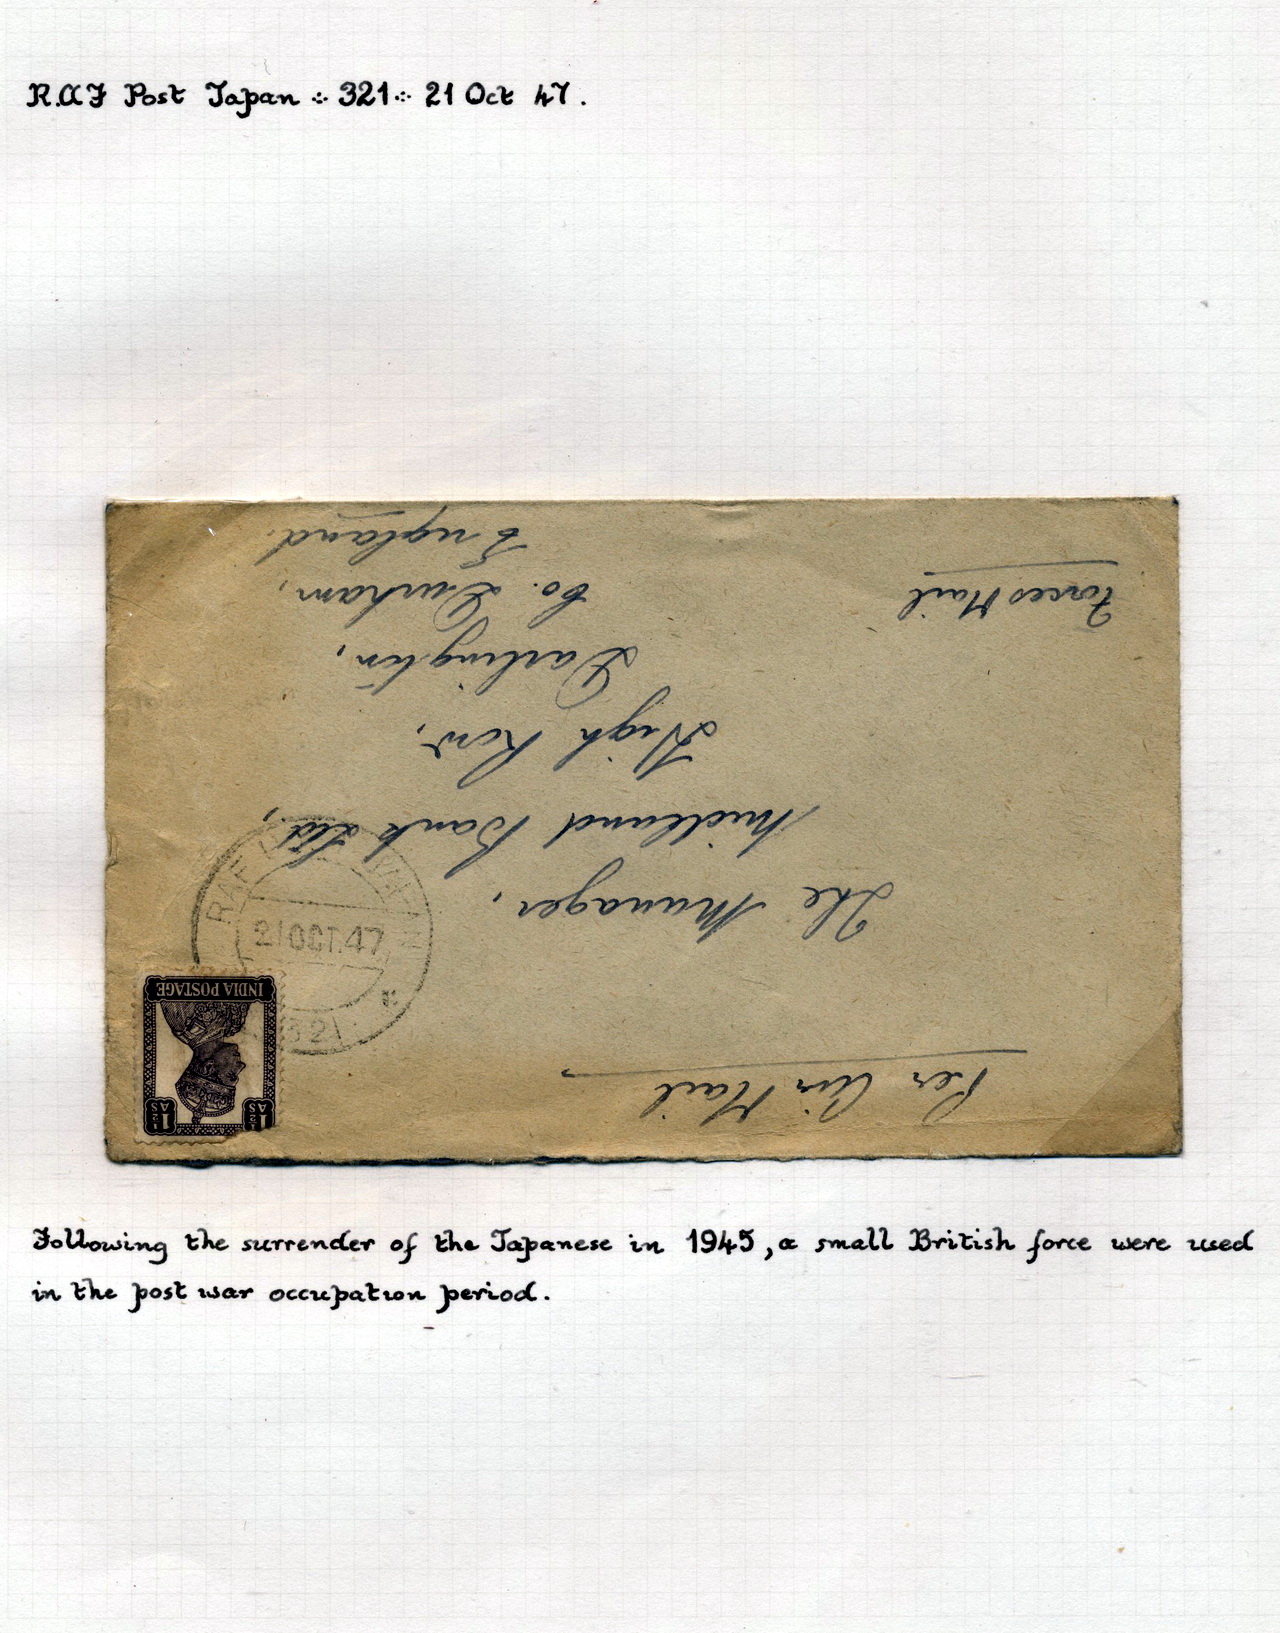 R.A.F Post Japan 321 21 Oct 47.
Per Air Mail
The Manager,
Midland Bank Ltd.,
High Row,
Darlington,
Co. Durham,
England.
Forces Mail
1½ AS 1½ AS
INDIA POSTAGE
RAF
21 OCT. 47
321
Following the surrender of the Japanese in 1945, a small British force were used
in the post war occupation period.